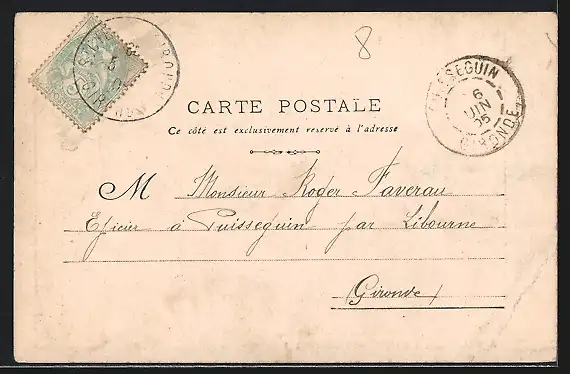 8
CARTE POSTALE
Ce côté est exclusivement réservé à l'adresse
PUISSEGUIN
6
JUIN
05
GIRONDE
M Monsieur Roger Faverau
Epicier à Puisseguin par Libourne
(Gironde)